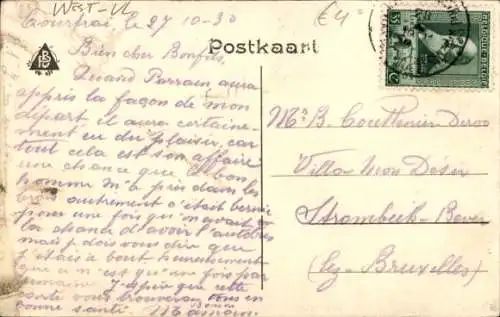 WEST-VL
€4
le 27-10-30
Postkaart
Bien cher Bonfils,
Quand Parrain aura
appris la façon de mon
départ il aura certaine-
ment eu du plaisir, car
tout cela est son affaire
une chance que le bon
homme m'a pris dans les
bras autrement c'était bernic
pour une fois qu'on avait
la chance d'avoir l'autobus
mais je dois vous dire que
j'étais à bout heureusement
que ce n'est qu'une fois par
semaine J'espère que cette
carte vous trouveras tous en
bonne santé. Bonne
Mr. B. Couttenier Deroo
Villa Mon Désir
Strombeek-Bever
(lez-Bruxelles)
BELGIQUE-BELGIË
35 C